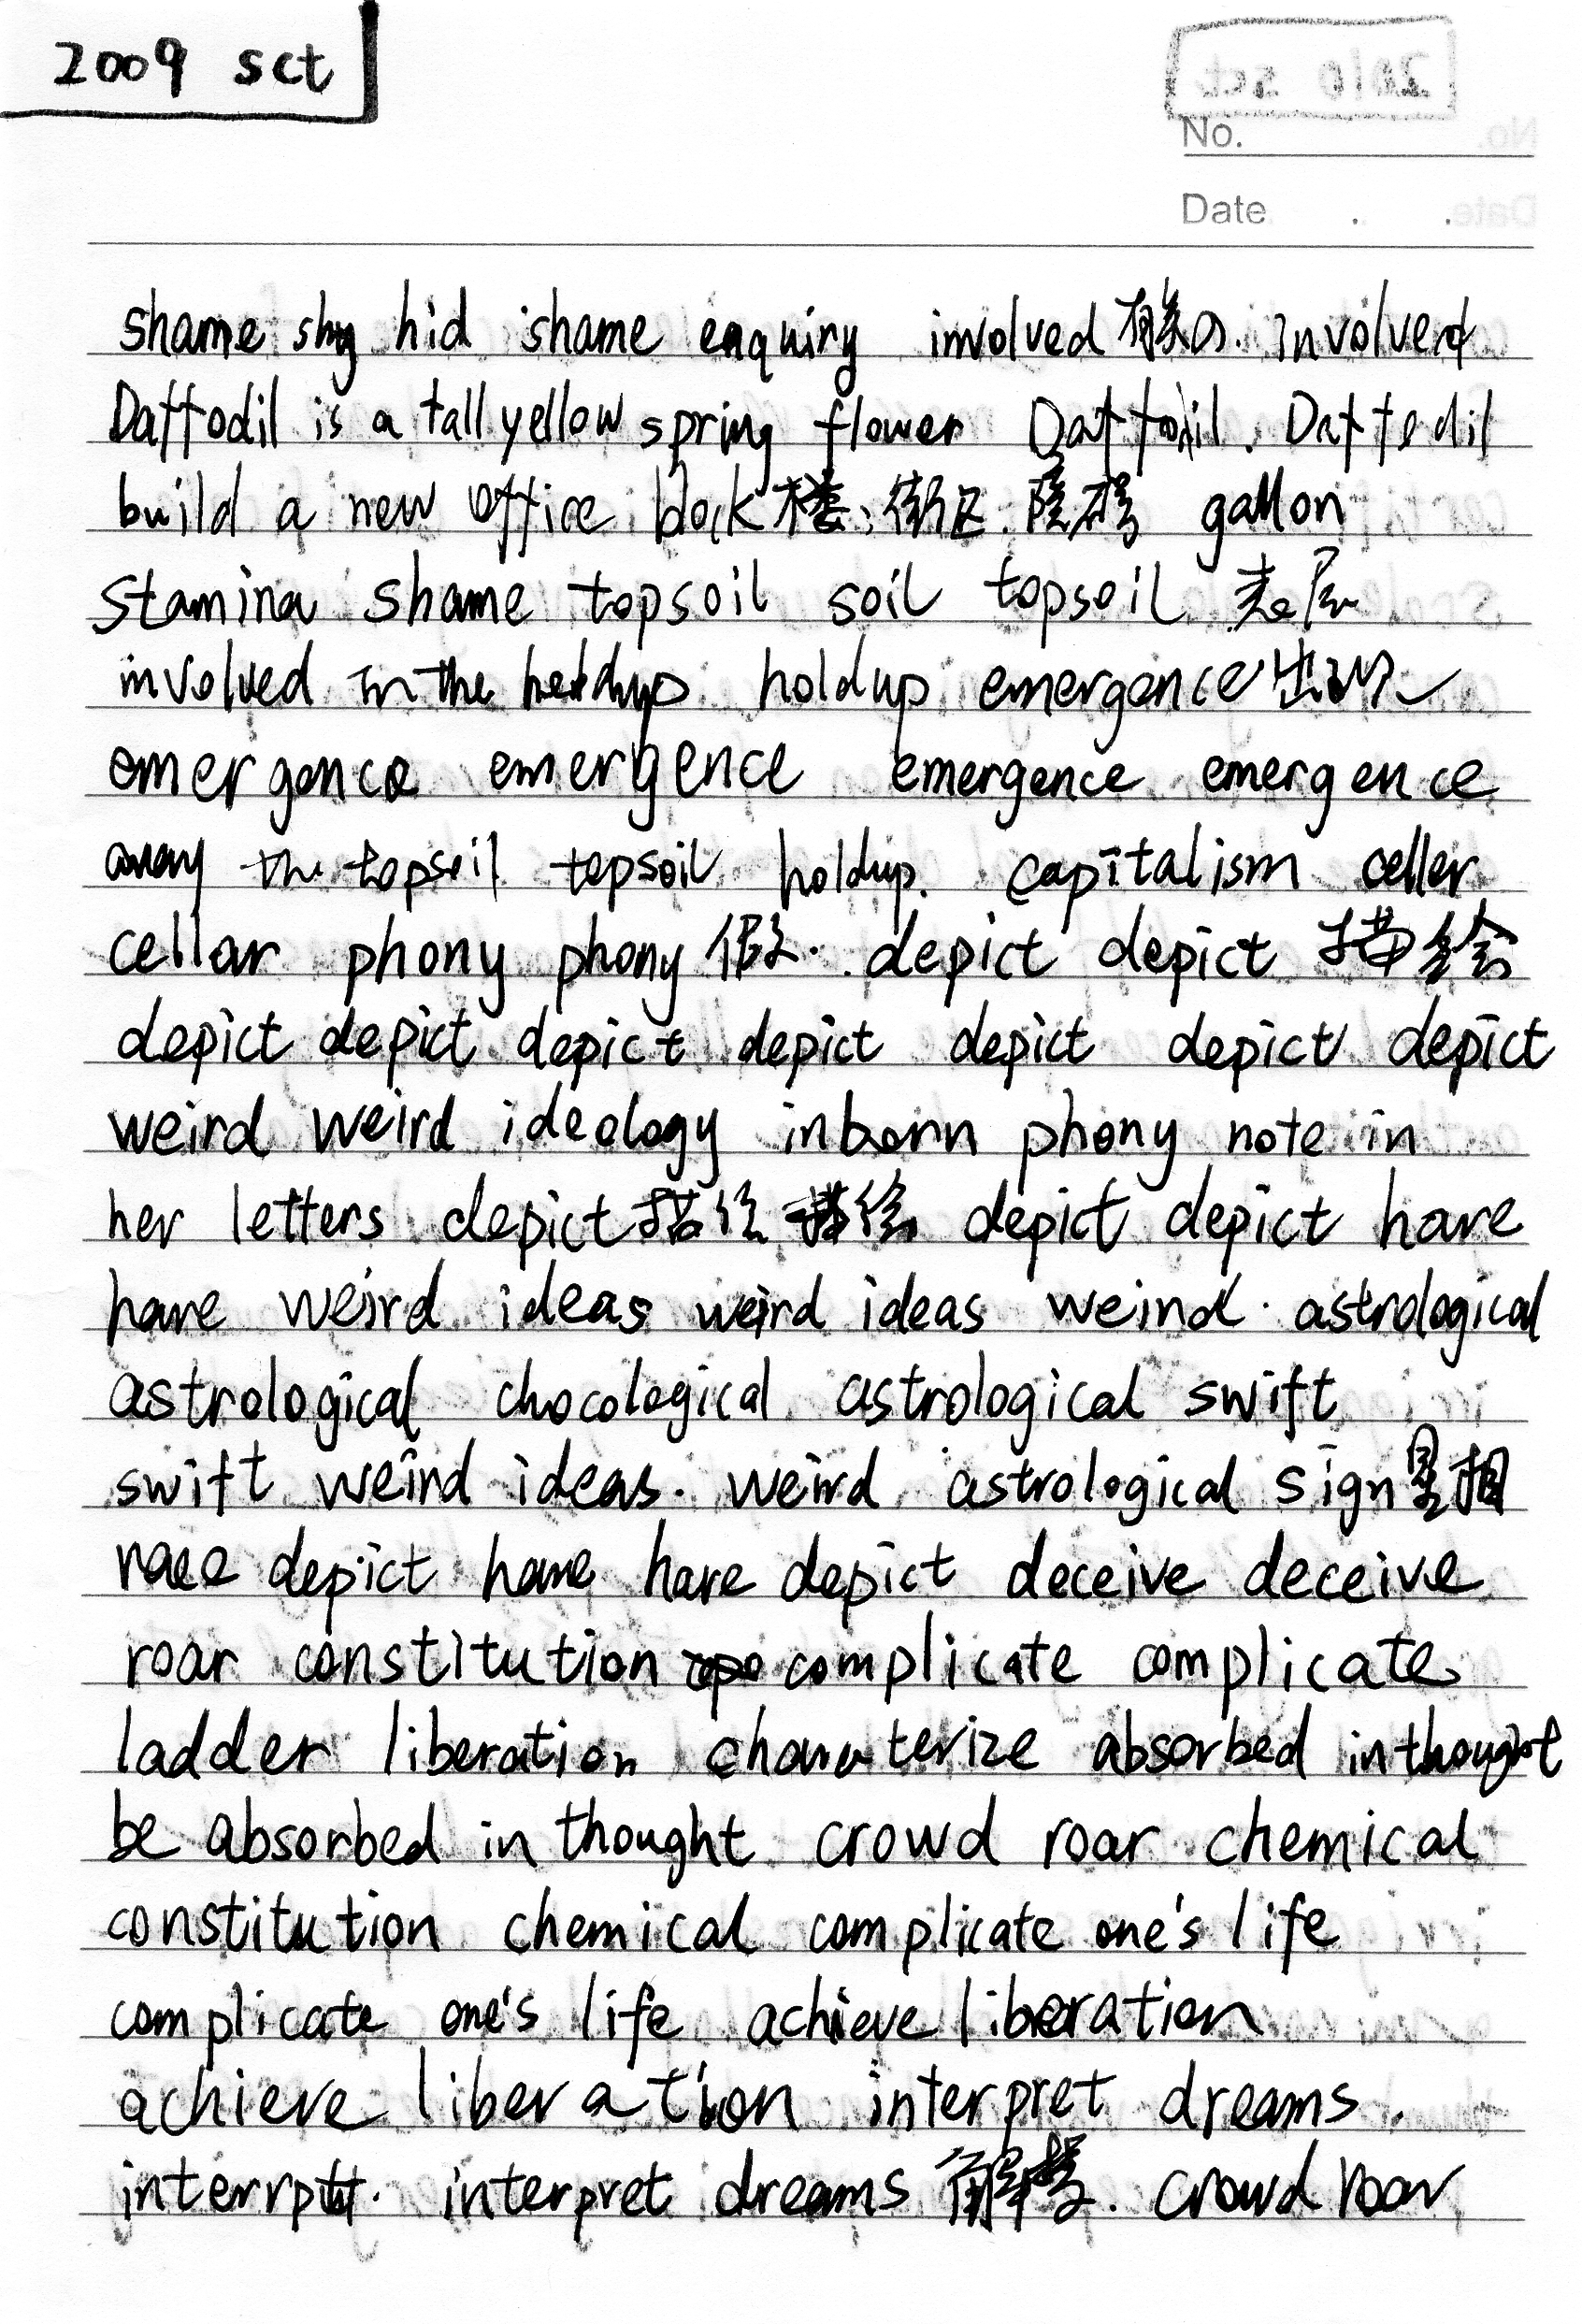 2009 sct
No.
Date . .
shame shy hid shame enquiry involved involved
Daffodil is a tall yellow spring flower Daffodil. Daffodil
build a new office block 楼; 街区. 障碍 gallon
stamina shame topsoil soil topsoil 表层
involved in the holdup holdup emergence 出现
emergence emergence emergence emergence
away the topsoil topsoil holdup. capitalism celler
cellar phony phony 假. depict depict 描绘
depict depict depict depict depict depict depict
weird weird ideology inborn phony note in
her letters depict 描绘 描绘 depict depict hare
hare weird ideas weird ideas weird. astrological
astrological chocological astrological swift
swift weird ideas. weird astrological sign 星相
race depict hare hare depict deceive deceive
roar constitution complicate complicate
ladder liberation characterize absorbed in thought
be absorbed in thought crowd roar chemical
constitution chemical complicate one's life
complicate one's life achieve liberation
achieve liberation interpret dreams.
interpret dreams 解梦. crowd roar